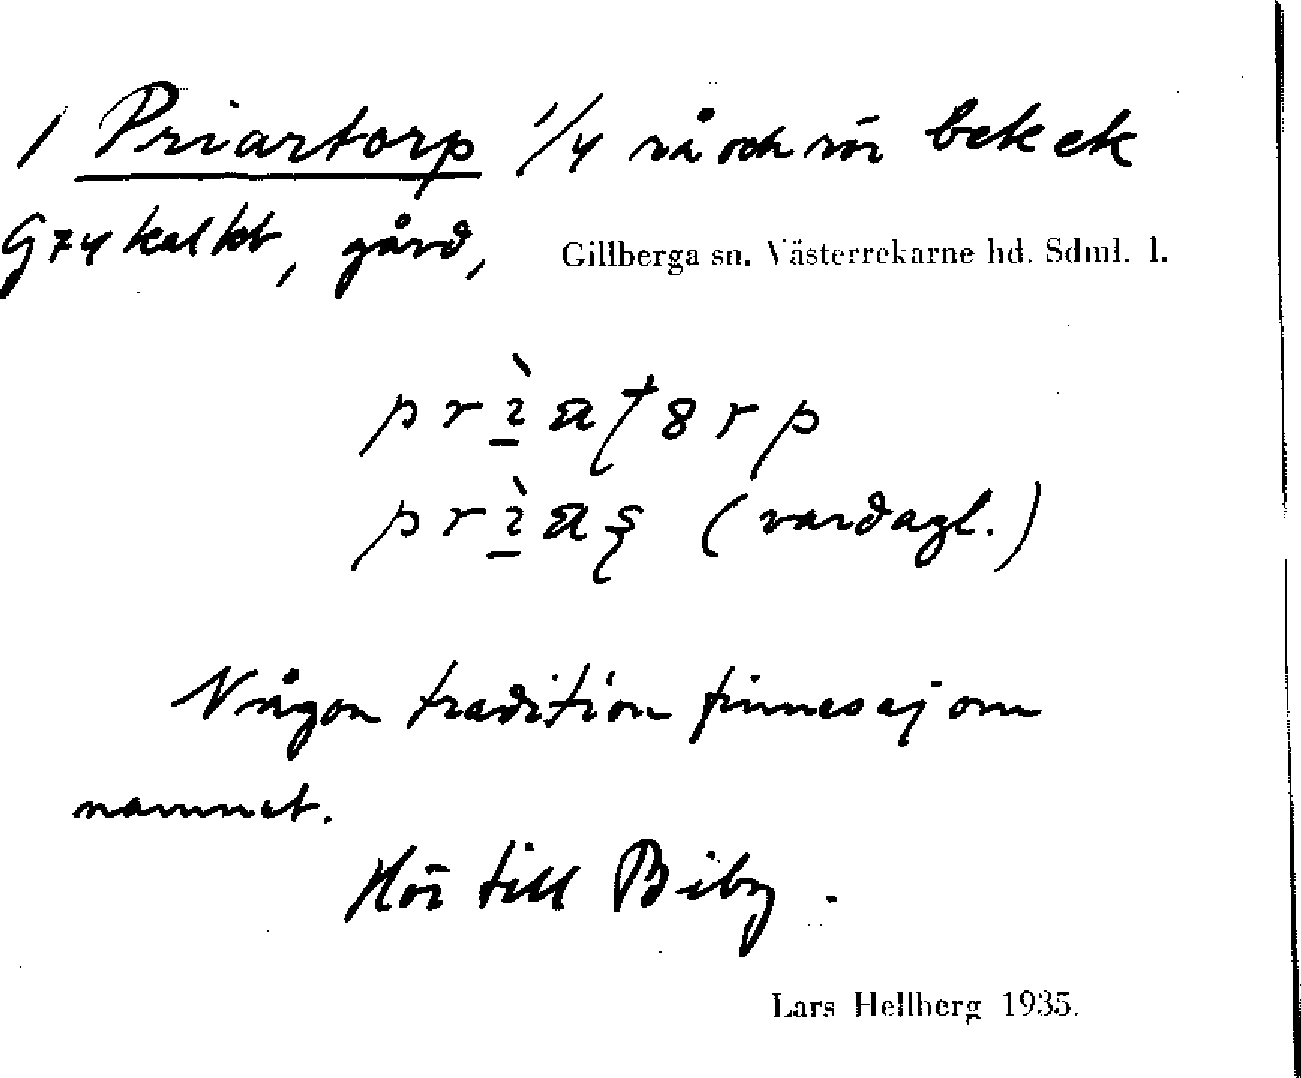 1 Priartorp 1/4 rå och rör bek ek
G74 kalkbt, gård, Gillberga sn. Västerrekarne hd. Sdml. l.
prìatorp
prìas (vardagl.)
Någon tradition finnes ej om
namnet.
Hör till Biby.
Lars Hellberg 1935.